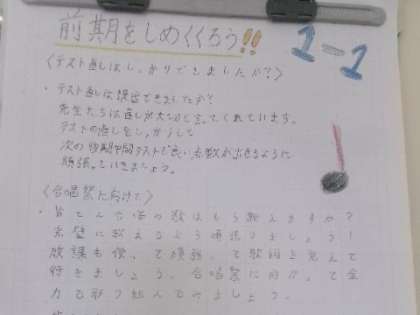 前期をしめくくろう!!
1-1
〈テスト直しはしっかりできましたか?〉
・テスト直しは提出できましたか?
先生たちは直しが大切と言ってくれています。
テストの直しをしっかりして
次の後期中間テストで良い点数が出せるように
頑張っていきましょう。
〈合唱祭に向けて〉
・皆さん合唱の歌はもう歌えますか?
完璧に歌えるよう頑張りましょう!
放課も使って練習して歌詞を覚えて
行きましょう。合唱祭に向けて全
力で取り組んでみましょう。